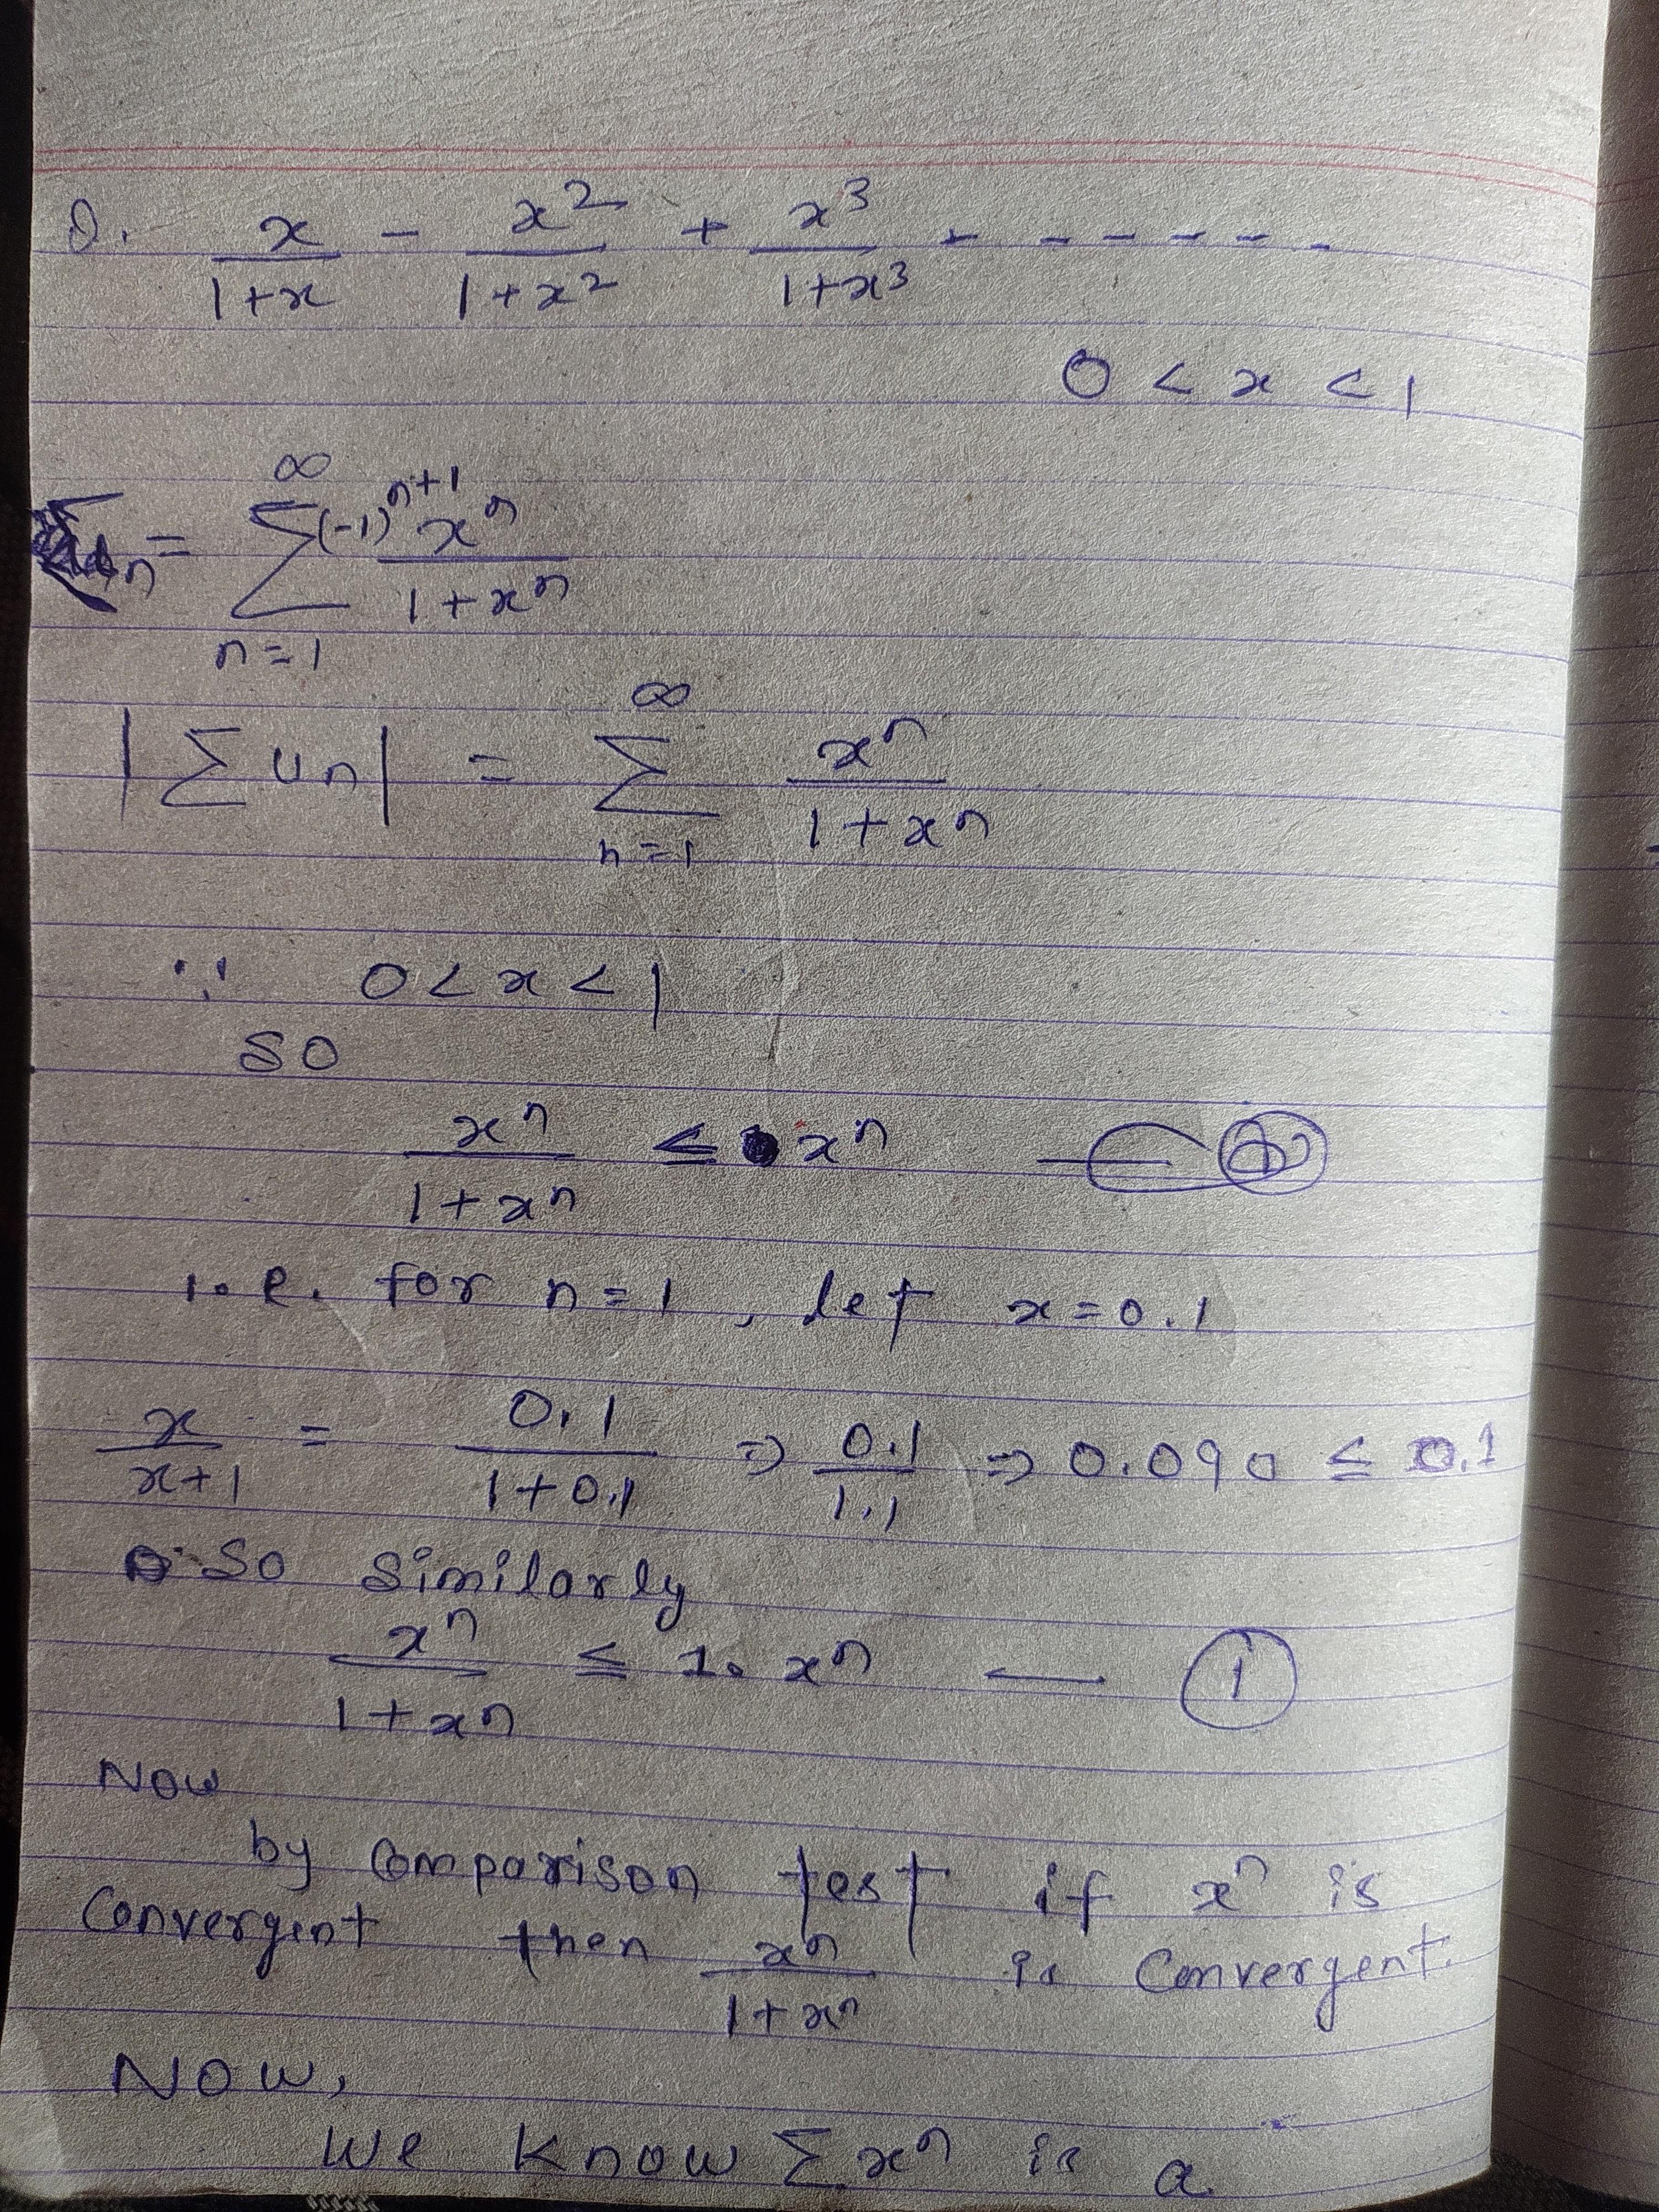 Q. x/(1+x) - x²/(1+x²) + x³/(1+x³) - - - - - - -
0 < x < 1
Σuₙ = ∞Σn=1 (-1)ⁿ⁺¹ xⁿ/(1+xⁿ)
|Σuₙ| = ∞Σn=1 xⁿ/(1+xⁿ)
∵ 0 < x < 1
so
xⁿ/(1+xⁿ) ≤ xⁿ
i.e. for n = 1, let x = 0.1
x/(x+1) = 0.1/(1+0.1) ⇒ 0.1/1.1 ⇒ 0.090 ≤ 0.1
So similarly
xⁿ/(1+xⁿ) ≤ 1. xⁿ — ①
Now
by comparison test if xⁿ is
convergent then xⁿ/(1+xⁿ) is convergent.
Now,
We know Σxⁿ is a